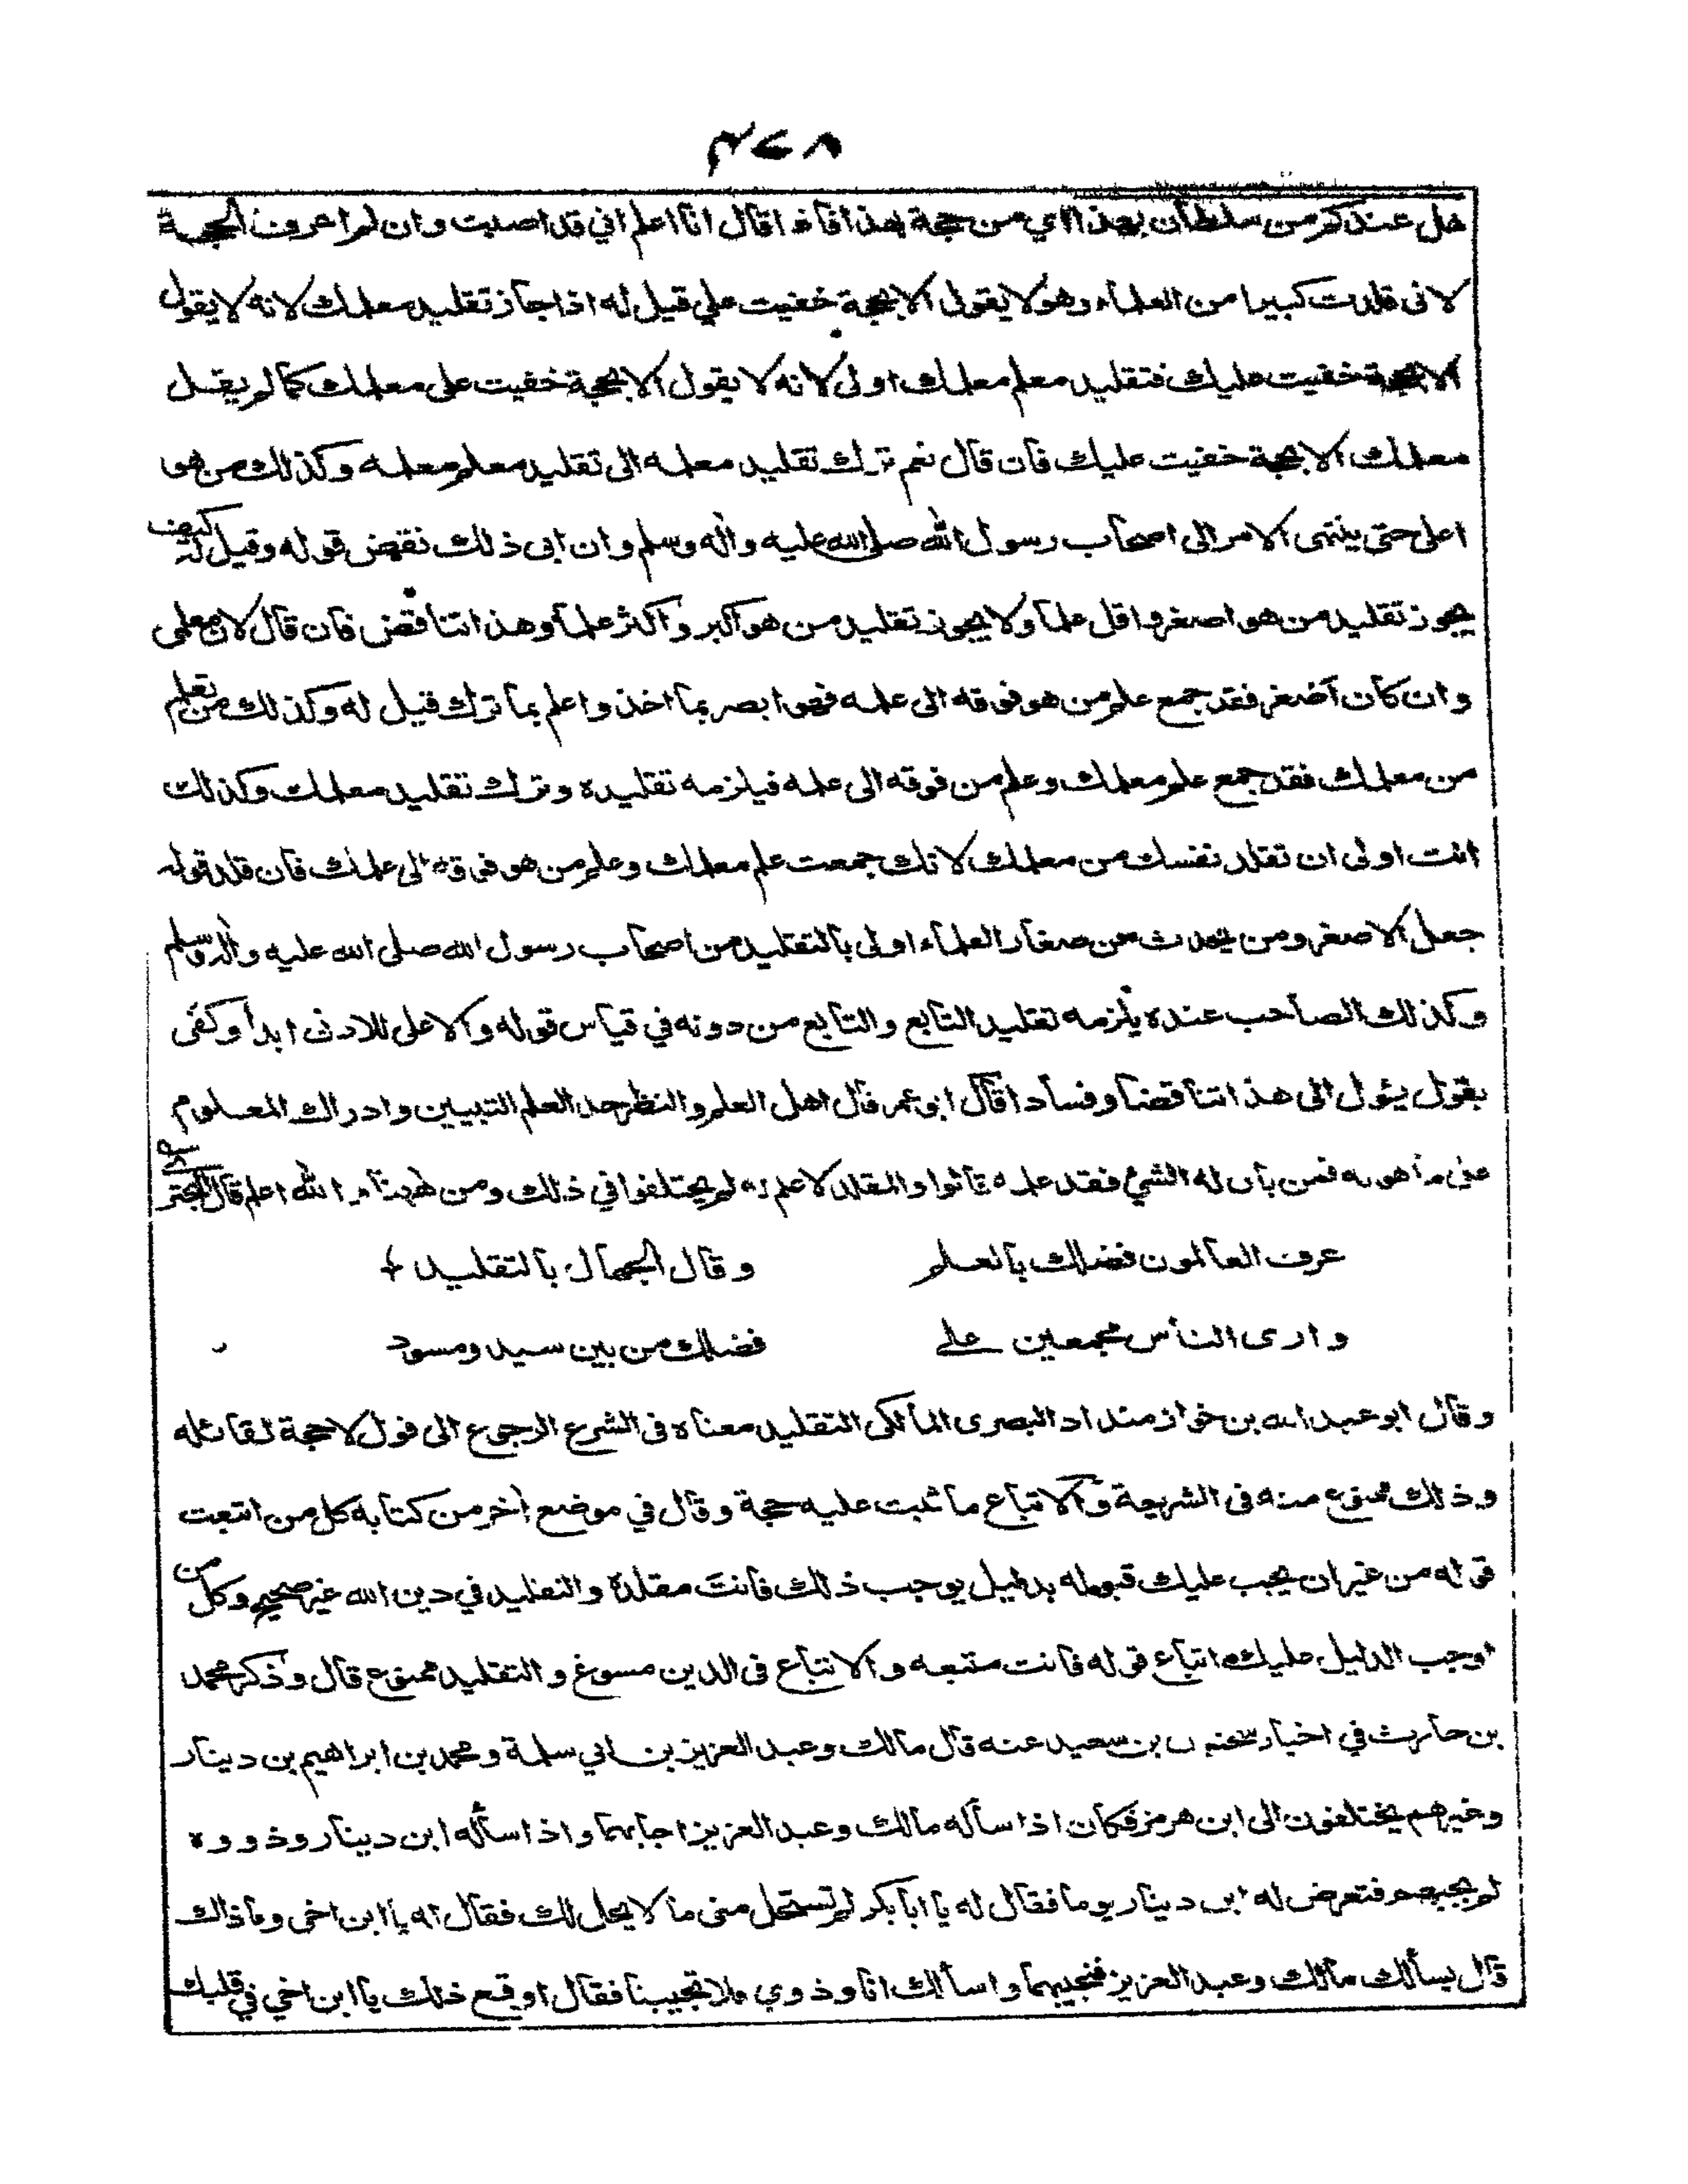 ٣٧٨
هل عندكم من سلطان بهذا اي من حجة بهذا فاذا قال انا اعلم اني قد اصبت وان لم اعرف الحجة
لانى قلدت كبيرا من العلماء وهو لا يقول الا بحجة خفيت علي قيل له اذا جاز تقليد معلمك لانه لا يقول
الا بحجة خفيت عليك فتقليد معلم معلمك اولى لانه لا يقول الا بحجة خفيت على معلمك كما لم يقل
معلمك الا بحجة خفيت عليك فان قال نعم ترك تقليد معلمه الى تقليد معلم معلمه وكذلك من هو
اعلى حتى ينتهى الامر الى اصحاب رسول الله صلى الله عليه واٰله وسلم وان ابى ذلك نقض قوله وقيل له كيف
يجوز تقليد من هو اصغر واقل علما ولا يجوز تقليد من هو اكبر واكثر علما وهذا تناقض فان قال لان معلمى
وان كان اصغر فقد جمع علم من هو فوقه الى علمه فهو ابصر بما اخذ واعلم بما ترك قيل له وكذلك من تعلم
من معلمك فقد جمع علم معلمك وعلم من فوقه الى علمه فيلزمه تقليده وترك تقليد معلمك وكذلك
انت اولى ان تقلد نفسك من معلمك لانك جمعت علم معلمك وعلم من هو فوقه الى علمك فان قلد قوله
جعل الاصغر ومن يحدث من صغار العلماء اولى بالتقليد من اصحاب رسول الله صلى الله عليه واٰله وسلم
وكذلك الصاحب عنده يلزمه تقليد التابع والتابع من دونه في قياس قوله والاعلى للادنى ابدا وكفى
بقول يئول الى هذا تناقضا وفسادا قال ابو عمر قال اهل العلم والنظر حد العلم التبيين وادراك المعلوم
على ما هو به فمن بان له الشئ فقد علمه قالوا والمقلد لا علم له لم يختلفوا في ذلك ومن ههنا والله اعلم قال البحترى
عرف العالمون فضلك بالعلم وقال الجهال بالتقليد
وارى الناس مجمعين على فضلك من بين سيد ومسود
وقال ابو عبد الله بن خواز منداد البصرى المالكى التقليد معناه فى الشرع الرجوع الى قول لا حجة لقائله
وذلك ممنوع منه فى الشريعة والاتباع ما ثبت عليه حجة وقال في موضع اٰخر من كتابه كل من اتبعت
قوله من غير ان يجب عليك قبوله بدليل يوجب ذلك فانت مقلده والتقليد في دين الله غير صحيح وكل من
اوجب الدليل عليك اتباع قوله فانت متبعه والاتباع فى الدين مسوغ والتقليد ممنوع قال وذكر محمد
بن حارث في اخبار سحنون بن سعيد عنه قال مالك وعبد العزيز بن ابي سلمة ومحمد بن ابراهيم بن دينار
وغيرهم يختلفون الى ابن هرمز فكان اذا ساله مالك وعبد العزيز اجابهما واذا ساله ابن دينار وذووه
لم يجبهم فتعرض له ابن دينار يوما فقال له يا ابا بكر لم تستحل منى ما لا يحل لك فقال له يا ابن اخى وما ذاك
قال يسألك مالك وعبد العزيز فتجيبهما واسألك انا وذوي فلا تجيبنا فقال اوقع ذلك يا ابن اخي في قلبك